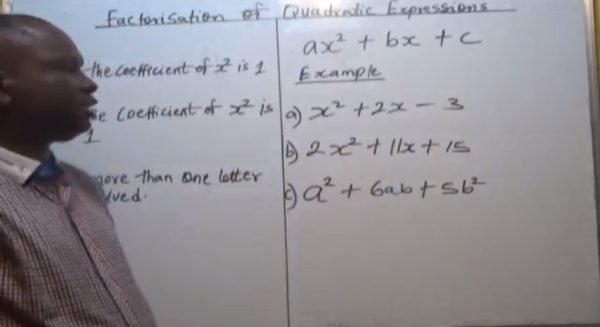 Factorisation of Quadratic Expressions
the coefficient of x² is 1
coefficient of x² is
1
more than one letter
ax² + bx + c
Example
a) x² + 2x - 3
b) 2x² + 11x + 15
c) a² + 6ab + 5b²